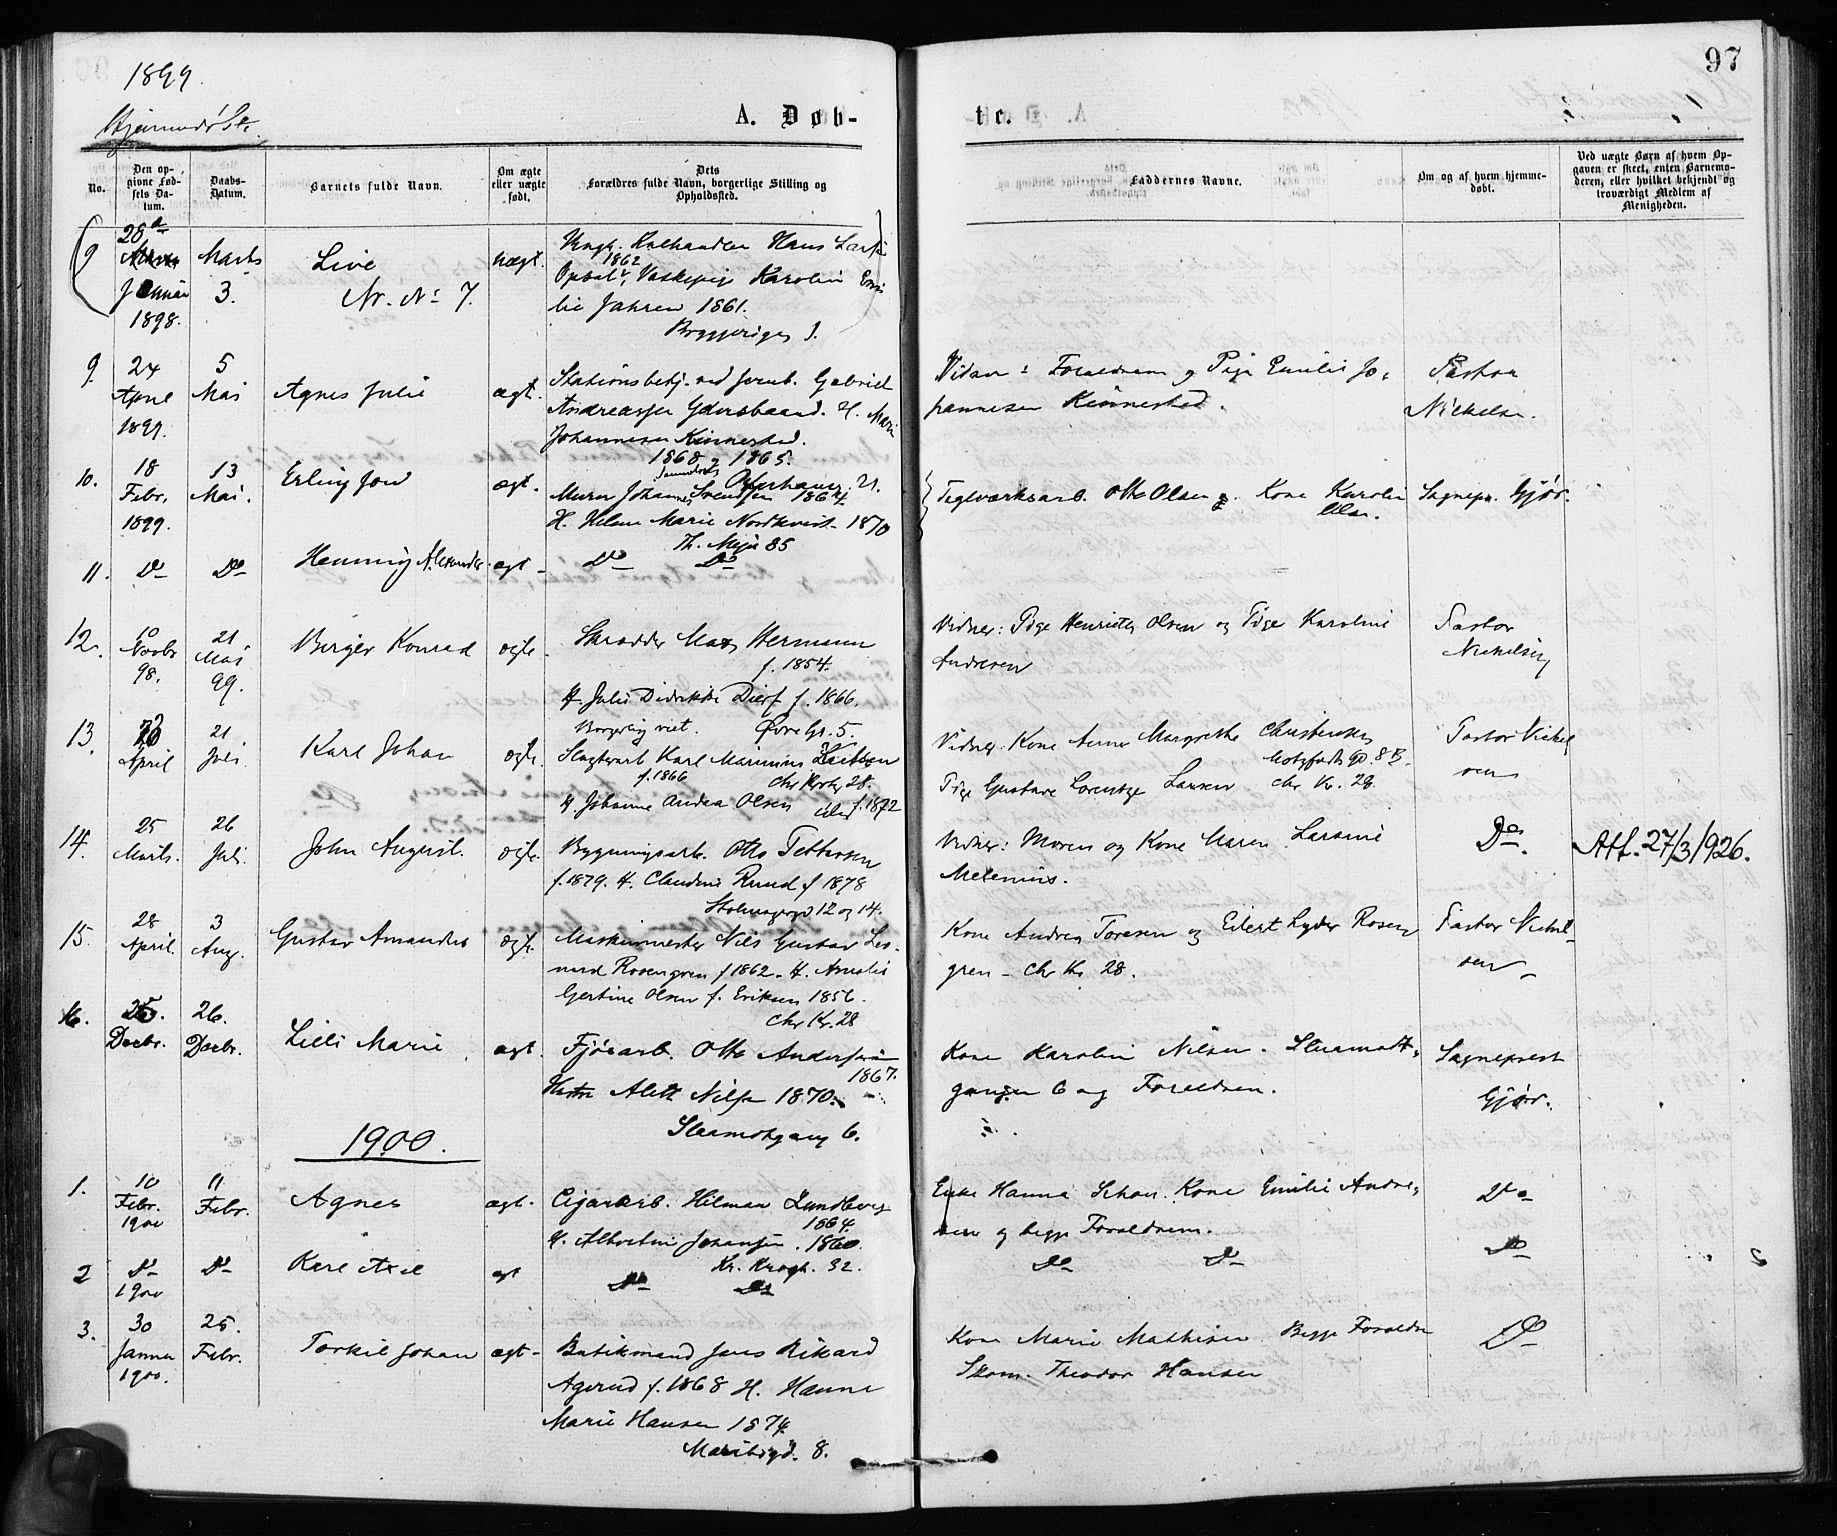 97
1899.
Hjemmedøbte.
A. Døb-
te.
No.
Den opgivne Fødsels Datum.
Daabs-Datum.
Barnets fulde Navn.
Om ægte eller uægte født.
Dets Forældres fulde Navn, borgerlige Stilling og Opholdssted.
Faddernes Navne.
Om og af hvem hjemmedøbt.
Ved uægte Børn af hvem Opgaven er skeet, enten Barnemoderen, eller hvilket bekjendt og troværdigt Medlem af Menigheden.
9 28de Januar 1898. Marts 3. Live uægt. Ungk. Kulhandler Hans
Nr. No 7. 1862
Opsal, Vaskepige Karolin
lie Jahren 1861.
Bryggerigen 1.
9. 24 April 1899. 5 Mai Agnes Julie ægt. Stationsbetj. ved Jernb. Gabriel
Andreassen H. Marie
Johannesen Kinnestad.
1868 og 1865.
Vidner: Forældrene og Pige Emilie Jo-
hannesen Kinnestad.
Pastor
Nickelsen.
10. 18 Febr. 1899. 13 Mai. Erling Jon ægt. Murer Johannes Svendsen 1864
H. Helene Marie Nordkvist 1870
Th. Meyer 85
Teglværksarb. Otto Olsen og Kone Karolin
Olsen.
Sognepr. Gjør.
11. Do Do Henning Alexander ægt Do Do
12. 10 Novbr 98. 21 Mai 99. Birger Konrad ægte Skrædder Max Hermann
f. 1854.
H. Julie Didrikke f. 1866.
Borgerlig viet. Øvre Gr. 5.
Vidner: Pige Henriette Olsen og Pige Karoline
Andresen
Pastor
Nickelsen
13. April 21 Juli Karl Johan ægte. Slagtearb Karl Marinius
f. 1866 Chr Krohg 28.
H. Johanne Andrea Olsen f. 1872
Vidner: Kone Anne Margrethe Christensen
Motzfeldts Gd. 8 B.
Pige Gustava Lorentze Larsen Chr. Kr. 28.
Pastor Nickel
sen
14. 25 Marts. 26 Juli John August. ægte. Bygningsarb. Otto Pettersen
f. 1879. H. Claudine Ruud f 1878
Stolmagergd 12 og 14.
Vidner: Moren og Kone Maren Larsine
Melenius.
Do.
Att. 27/3/926.
15. 28 April. 3 Aug. Gustav Amandus ægte Maskinmester Nils Gustav Leo-
nard Rosengren f 1862. H. Amalie
Gertine Olsen f. Eriksen 1856.
Chr Kr. 28
Kone Andrea Toresen og Eilert Lyder Rosen
gren - Chr Kr. 28.
Pastor Nickel-
sen
16. 25. Decbr. 26. Decbr. Lilli Marie ægt. Otto Andersen
1867.
Hustru Alett Nilsen 1870.
Steenmotgang 6.
Kone Karolin Nilsen. Steenmott-
gangen 6 og Forældren.
Sogneprest
Gjør.
1900.
1. 10 Febr. 1900 11 Febr. Agnes ægt. Cigararb. Hilmar Lundberg
1864.
H. Albertine Johansen. 1860.
Kr. Krogh. 32.
Enke Hanna Schou. Kone Emilie Andre-
sen og begge Forældrene.
Do
2 Do 1900 Do Karl Axel ægt Do Do
Do Do
Do
3. 30 Januar 1900. 25. Febr. Torkil Johan ægt- Butikmand Jens Rikard
Agerud f. 1868 H. Hanne
Marie Hansen 1874
Maribogd. 8.
Kone Marie Mathisen Begge Forældre
Skom. Theodor Hansen
Do